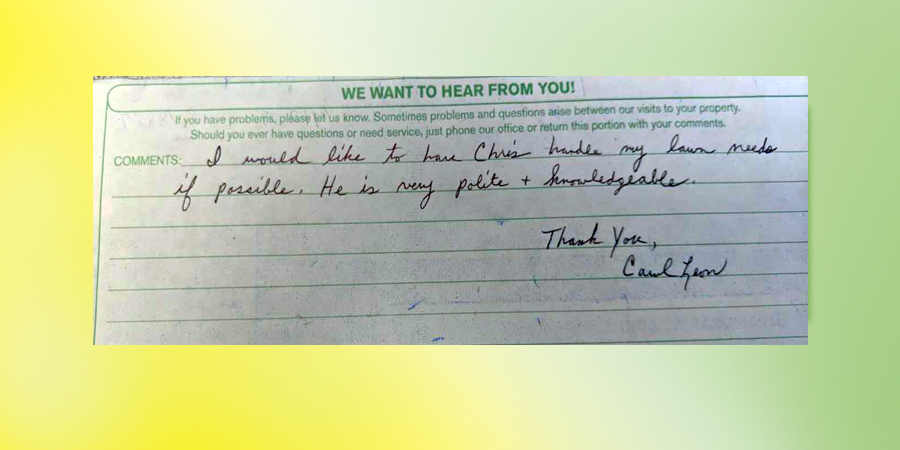 WE WANT TO HEAR FROM YOU!
If you have problems, please let us know. Sometimes problems and questions arise between our visits to your property.
Should you ever have questions or need service, just phone our office or return this portion with your comments.
COMMENTS: I would like to have Chris handle my lawn needs
if possible. He is very polite + knowledgeable.
Thank You,
Carol Leon